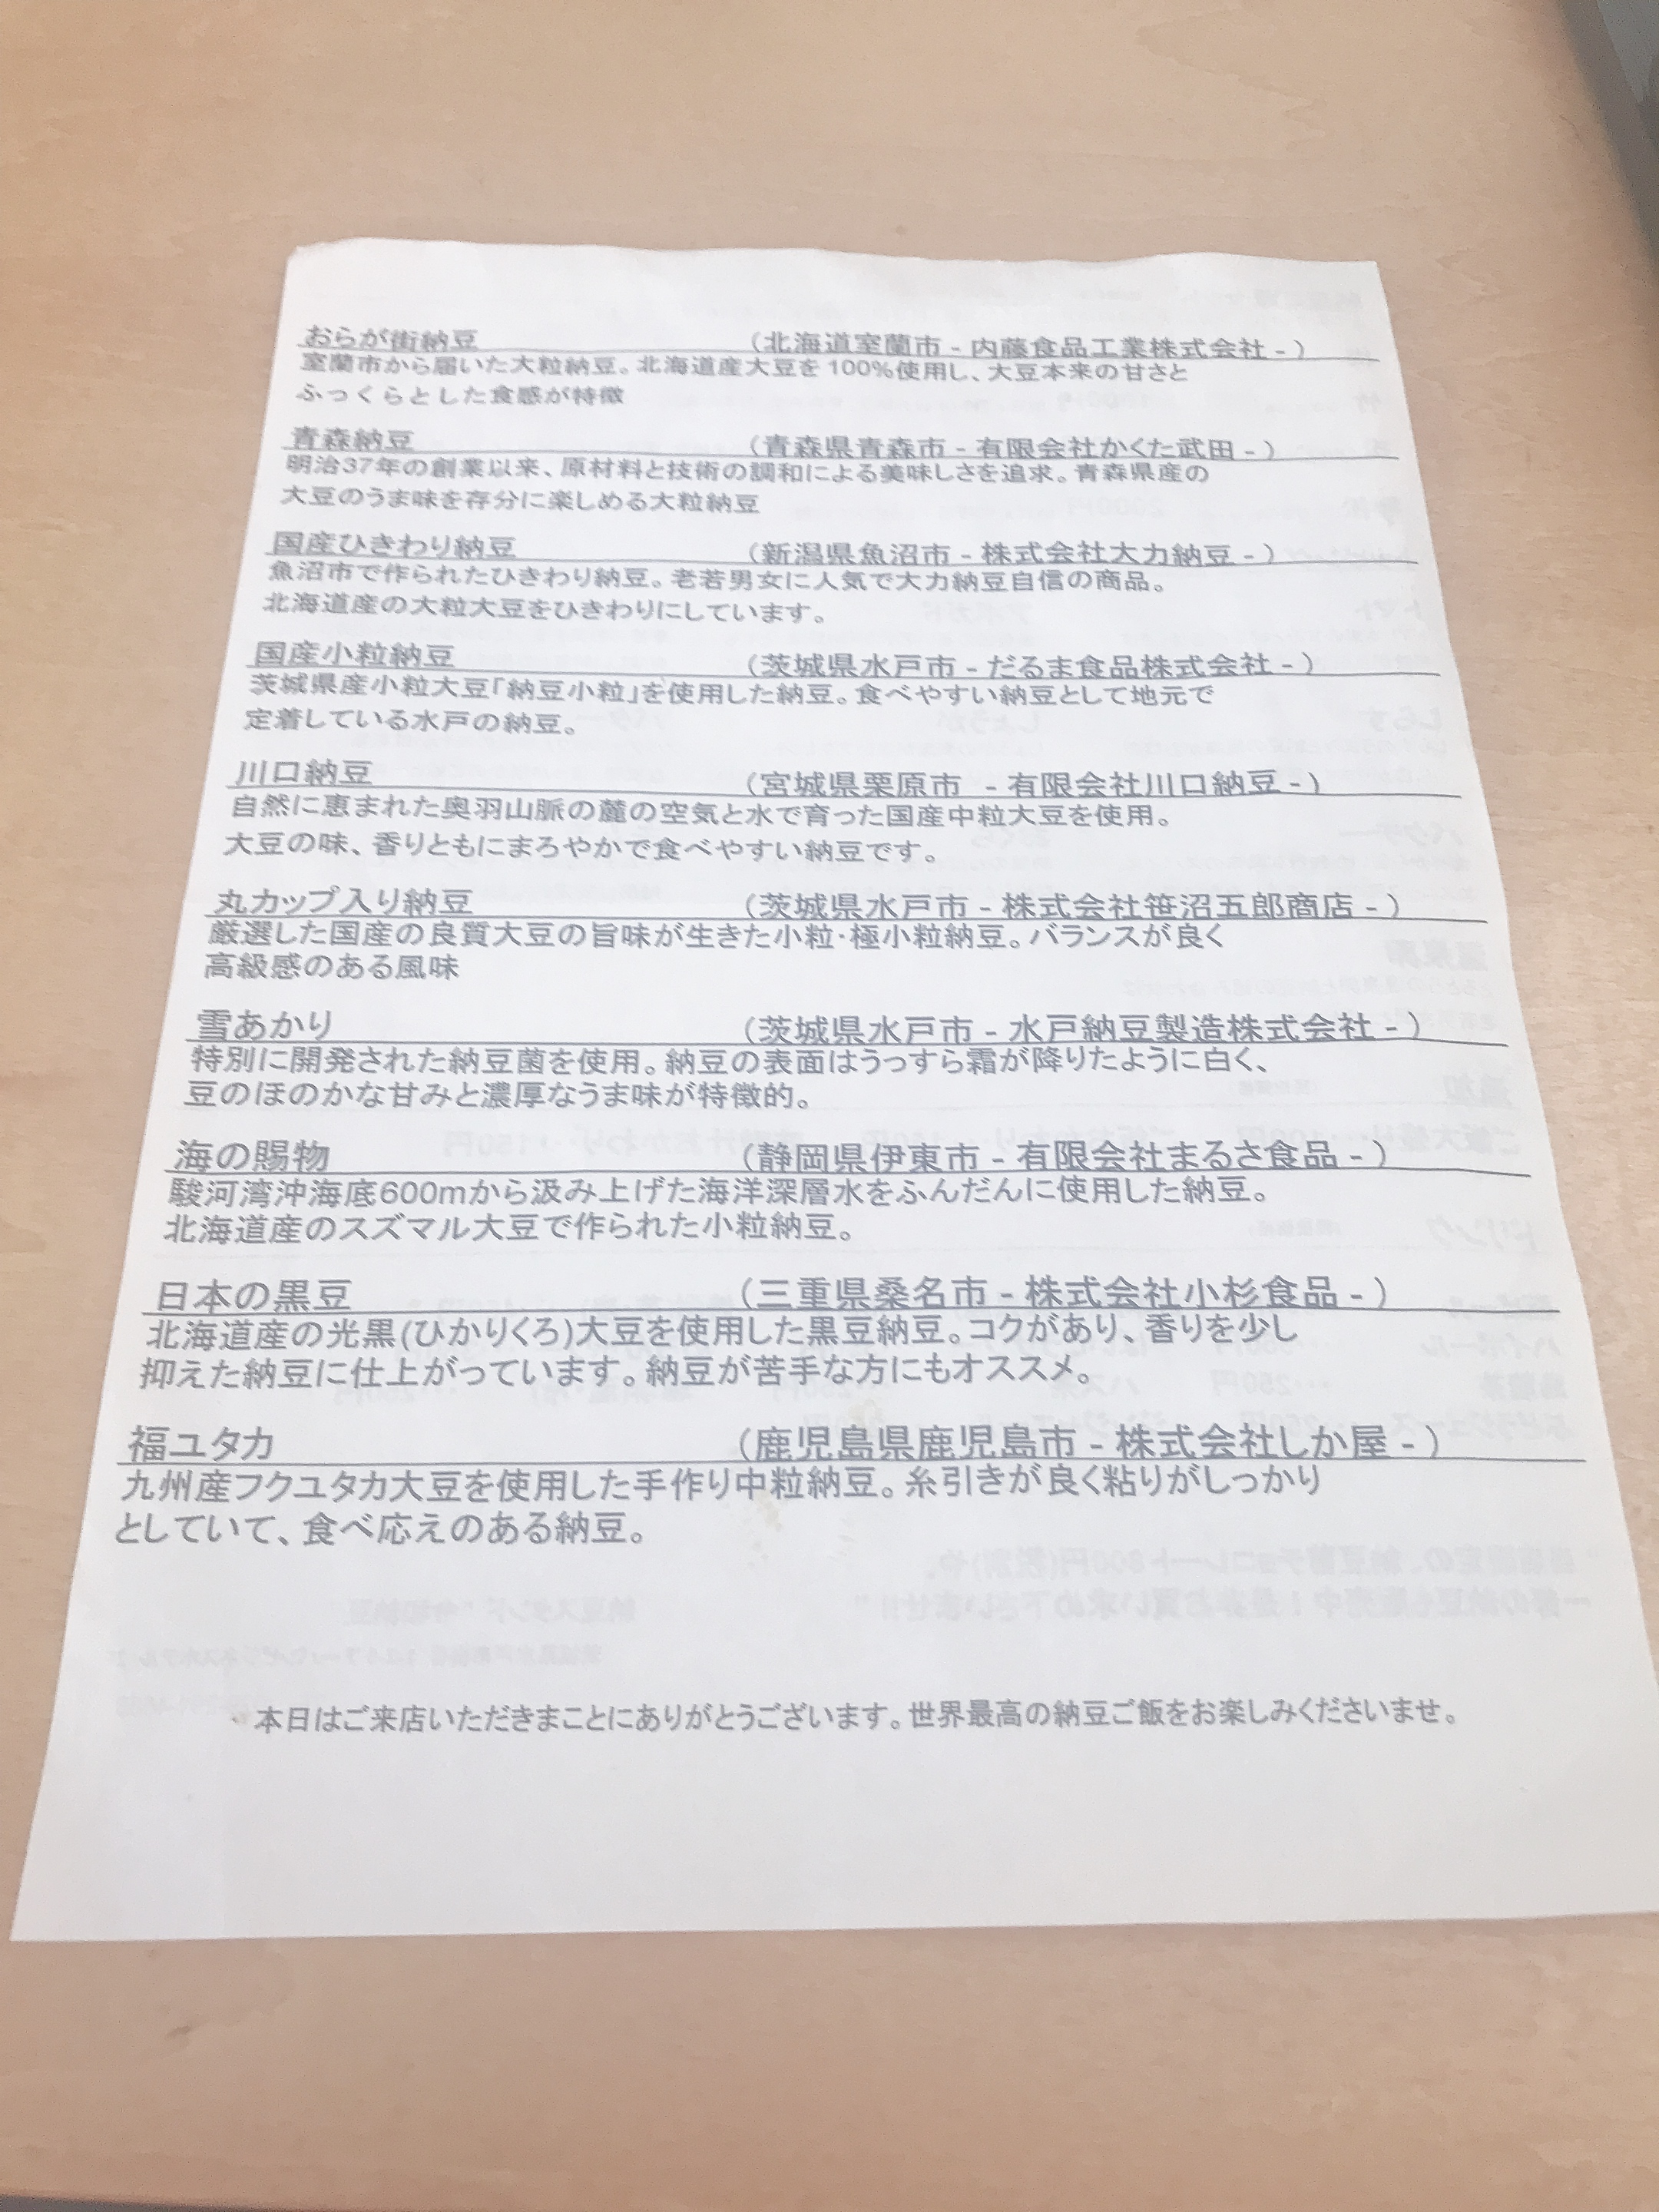 おらが街納豆 (北海道室蘭市 - 内藤食品工業株式会社 - )
室蘭市から届いた大粒納豆。北海道産大豆を100%使用し、大豆本来の甘さと
ふっくらとした食感が特徴
青森納豆 (青森県青森市 - 有限会社かくた武田 - )
明治37年の創業以来、原材料と技術の調和による美味しさを追求。青森県産の
大豆のうま味を存分に楽しめる大粒納豆
国産ひきわり納豆 (新潟県魚沼市 - 株式会社大力納豆 - )
魚沼市で作られたひきわり納豆。老若男女に人気で大力納豆自信の商品。
北海道産の大粒大豆をひきわりにしています。
国産小粒納豆 (茨城県水戸市 - だるま食品株式会社 - )
茨城県産小粒大豆「納豆小粒」を使用した納豆。食べやすい納豆として地元で
定着している水戸の納豆。
川口納豆 (宮城県栗原市 - 有限会社川口納豆 - )
自然に恵まれた奥羽山脈の麓の空気と水で育った国産中粒大豆を使用。
大豆の味、香りともにまろやかで食べやすい納豆です。
丸カップ入り納豆 (茨城県水戸市 - 株式会社笹沼五郎商店 - )
厳選した国産の良質大豆の旨味が生きた小粒・極小粒納豆。バランスが良く
高級感のある風味
雪あかり (茨城県水戸市 - 水戸納豆製造株式会社 - )
特別に開発された納豆菌を使用。納豆の表面はうっすら霜が降りたように白く、
豆のほのかな甘みと濃厚なうま味が特徴的。
海の賜物 (静岡県伊東市 - 有限会社まるさ食品 - )
駿河湾沖海底600mから汲み上げた海洋深層水をふんだんに使用した納豆。
北海道産のスズマル大豆で作られた小粒納豆。
日本の黒豆 (三重県桑名市 - 株式会社小杉食品 - )
北海道産の光黒(ひかりくろ)大豆を使用した黒豆納豆。コクがあり、香りを少し
抑えた納豆に仕上がっています。納豆が苦手な方にもオススメ。
福ユタカ (鹿児島県鹿児島市 - 株式会社しか屋 - )
九州産フクユタカ大豆を使用した手作り中粒納豆。糸引きが良く粘りがしっかり
としていて、食べ応えのある納豆。
本日はご来店いただきまことにありがとうございます。世界最高の納豆ご飯をお楽しみくださいませ。